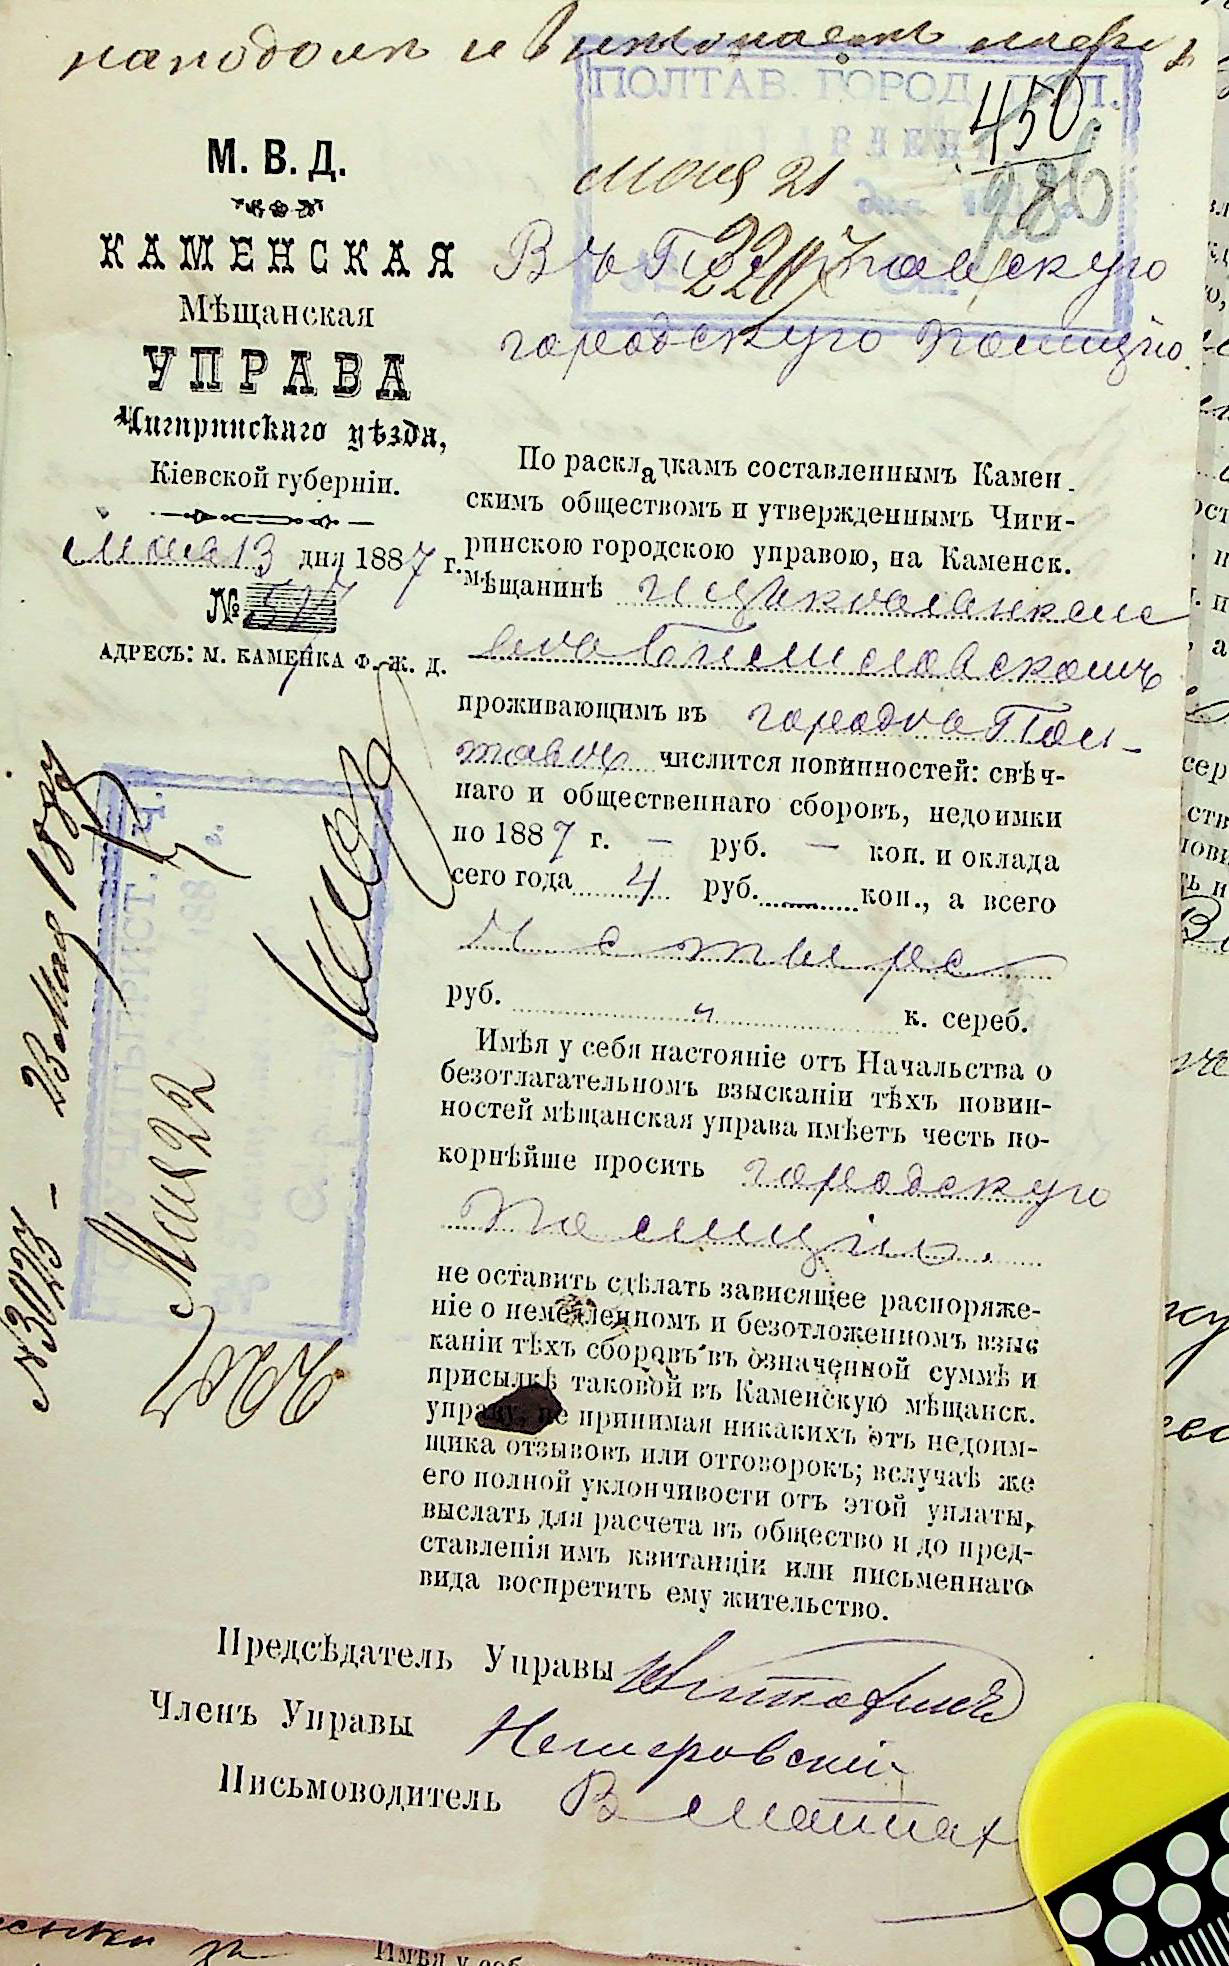 ПОЛТАВ. ГОРОД. ПОЛ.
450
286
Мая 21
М. В. Д.
КАМЕНСКАЯ
Мѣщанская
УПРАВА
Чигиринскаго уѣзда,
Кіевской губерніи.
Мая 13 дня 1887 г.
№ 517
АДРЕСЪ: М. КАМЕНКА Ф. Ж. Д.
Въ Полтавскую
городскую полицію.
По раскладкамъ составленнымъ Камен-
скимъ обществомъ и утвержденнымъ Чиги-
ринскою городскою управою, на Каменск.
мѣщанинѣ
проживающимъ въ городѣ Пол-
тавѣ числится повинностей: свѣч-
наго и общественнаго сборовъ, недоимки
по 1887 г. — руб. — коп. и оклада
сего года 4 руб. коп., а всего
четыре
руб. к. сереб.
Имѣя у себя настояніе отъ Начальства о
безотлагательномъ взысканіи тѣхъ повин-
ностей мѣщанская управа имѣетъ честь по-
корнѣйше просить городскую
полицію.
не оставить сдѣлать зависящее распоряже-
ніе о немедленномъ и безотложенномъ взыс
каніи тѣхъ сборовъ въ означенной суммѣ и
присылкѣ таковой въ Каменскую мѣщанск.
управу, не принимая никакихъ отъ недоим-
щика отзывовъ или отговорокъ; вслучаѣ же
его полной уклончивости отъ этой уплаты,
выслать для расчета въ общество и до пред-
ставленія имъ квитанціи или письменнаго
вида воспретить ему жительство.
Предсѣдатель Управы
Членъ Управы
Письмоводитель
№3023 - 23 Мая 1887
Мая 22
Имѣя у себ